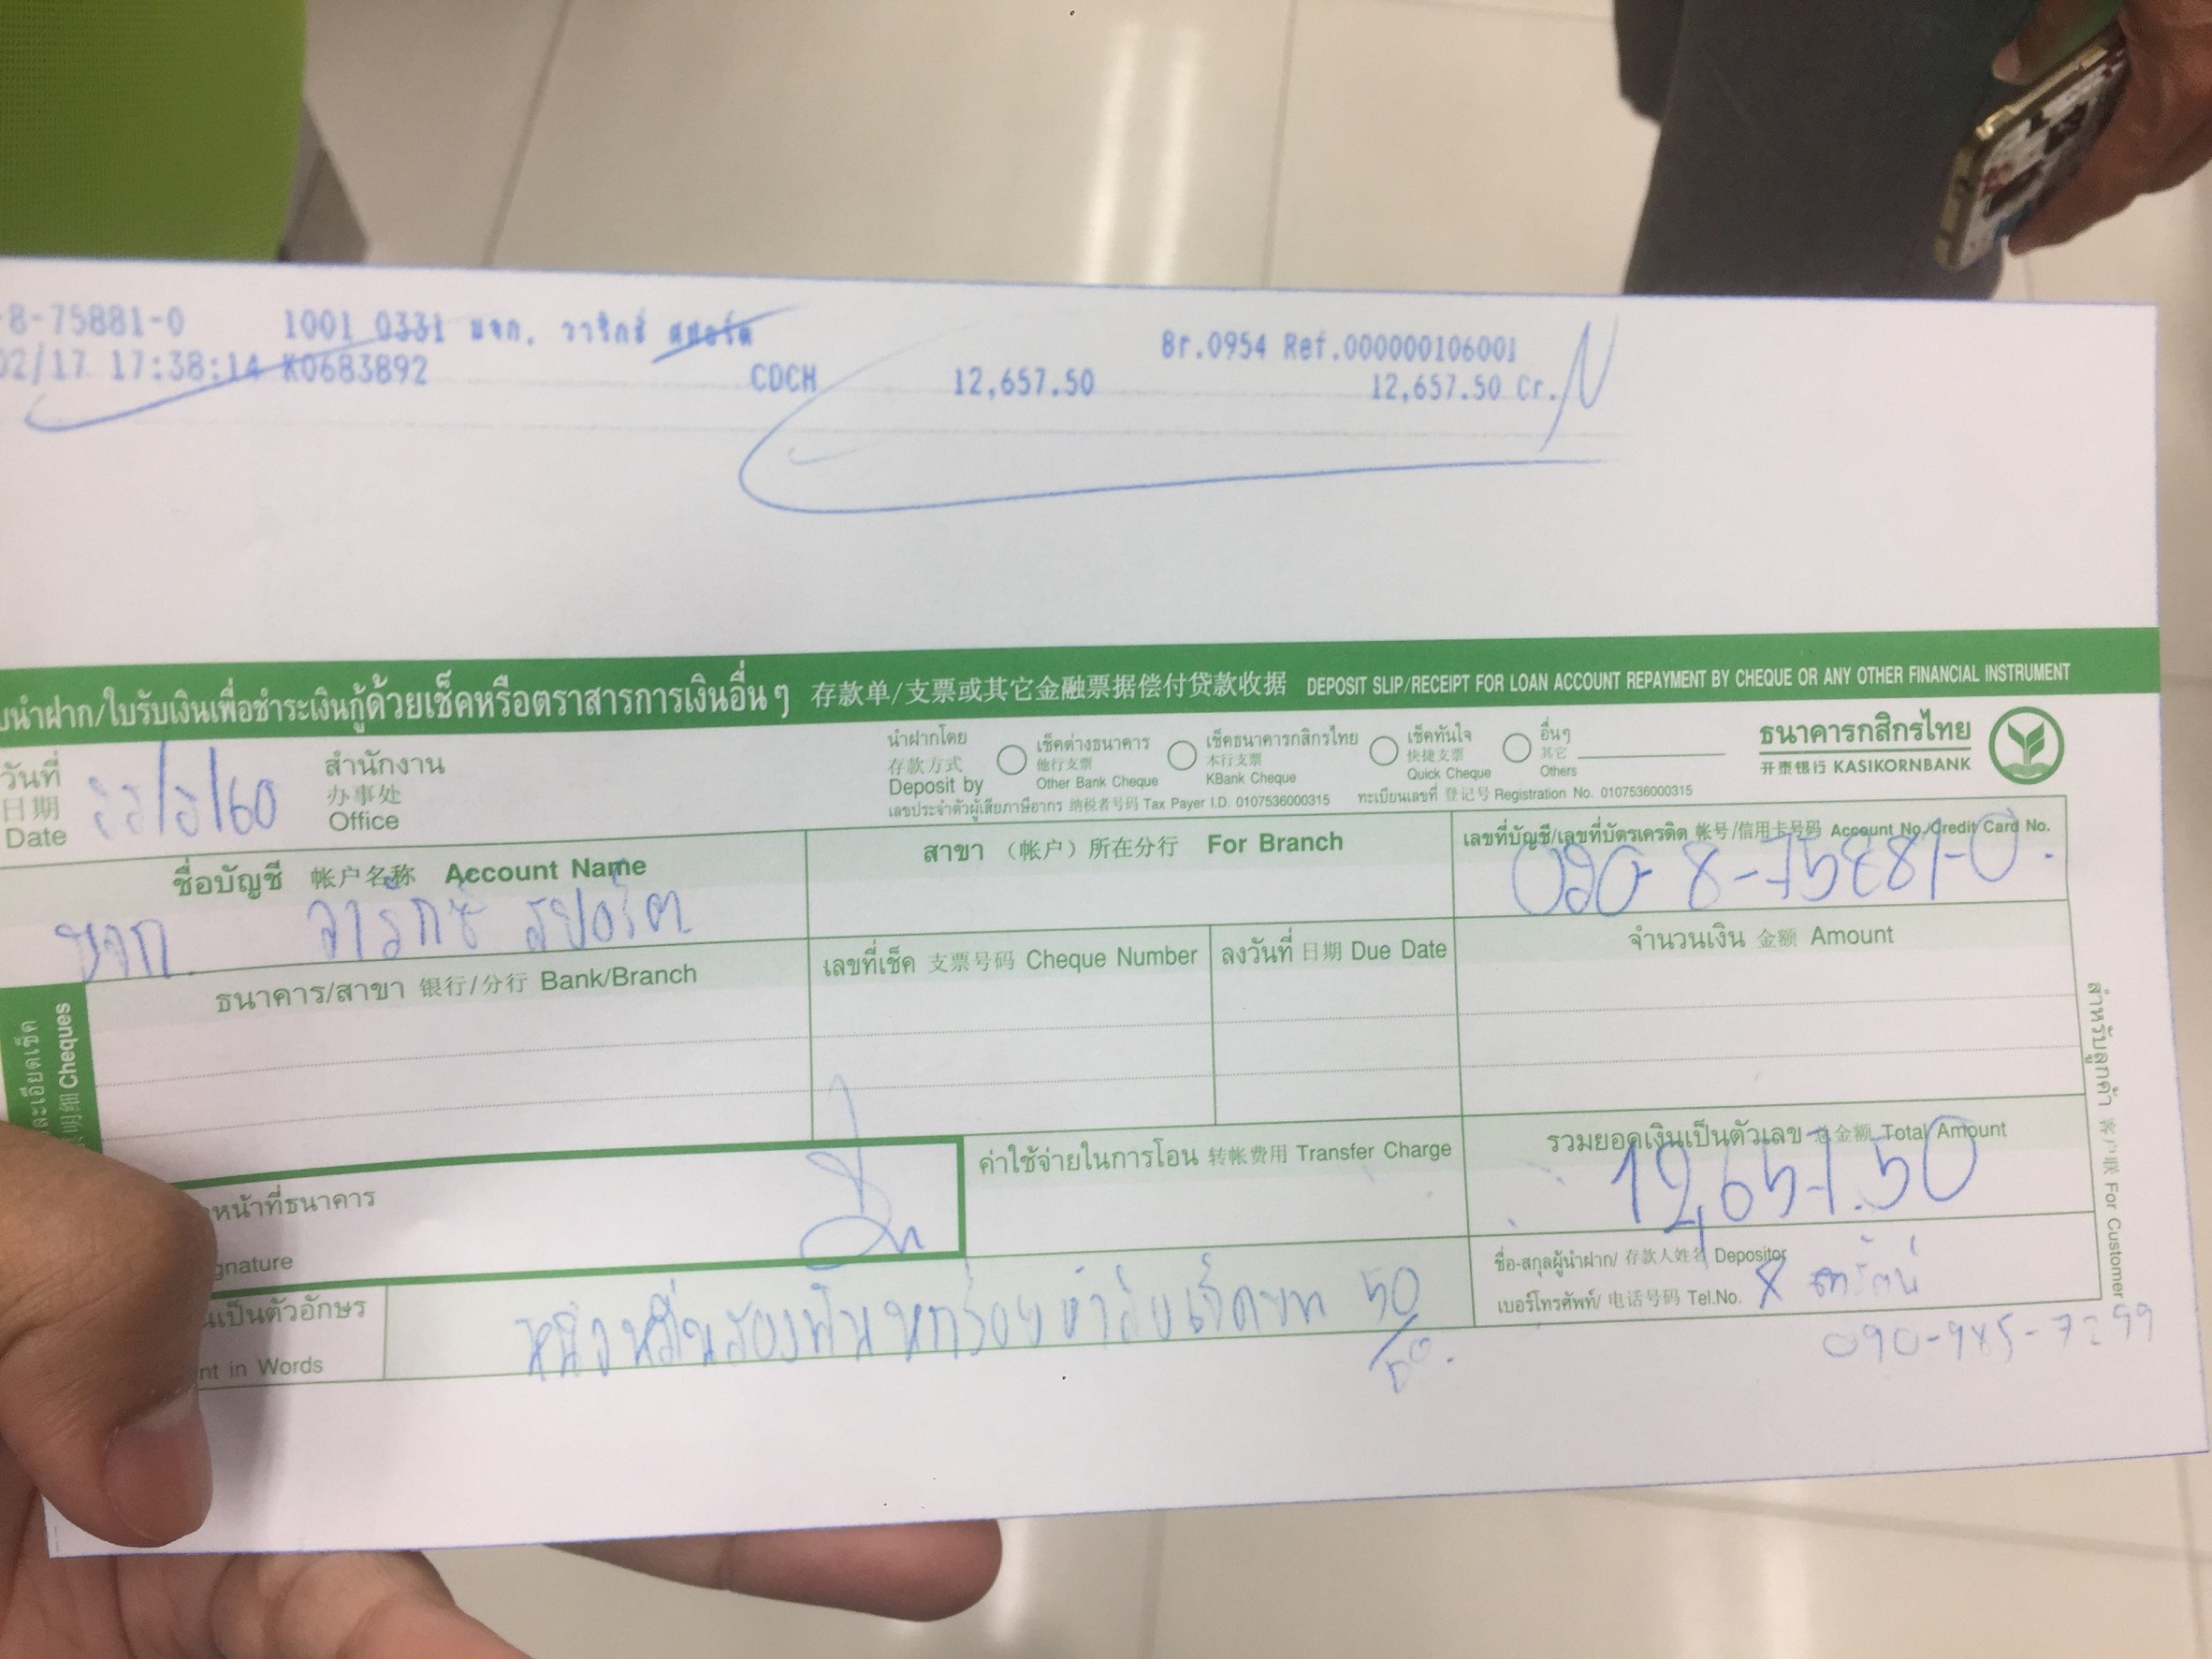 -8-75881-0 1001 0331 หจก. วาริกซ์ สปอร์ต Br.0954 Ref.000000106001
02/17 17:38:14 K0683892 CDCH 12,657.50 12,657.50 Cr.
บนำฝาก/ใบรับเงินเพื่อชำระเงินกู้ด้วยเช็คหรือตราสารการเงินอื่น ๆ 存款单/支票或其它金融票据偿付贷款收据 DEPOSIT SLIP/RECEIPT FOR LOAN ACCOUNT REPAYMENT BY CHEQUE OR ANY OTHER FINANCIAL INSTRUMENT
วันที่
日期
Date
/60
สำนักงาน
办事处
Office
นำฝากโดย
存款方式
Deposit by
เช็คต่างธนาคาร
他行支票
Other Bank Cheque
เช็คธนาคารกสิกรไทย
本行支票
KBank Cheque
เช็คทันใจ
快捷支票
Quick Cheque
อื่นๆ
其它
Others
ธนาคารกสิกรไทย
开泰银行 KASIKORNBANK
เลขประจำตัวผู้เสียภาษีอากร 纳税者号码 Tax Payer I.D. 0107536000315 ทะเบียนเลขที่ 登记号 Registration No. 0107536000315
ชื่อบัญชี 帐户名称 Account Name
หจก. วาริกซ์ สปอร์ต
สาขา （帐户）所在分行 For Branch
เลขที่บัญชี/เลขที่บัตรเครดิต 帐号/信用卡号码 Account No./Credit Card No.
020-8-75881-0.
ละเอียดเช็ค
明细 Cheques
ธนาคาร/สาขา 银行/分行 Bank/Branch
เลขที่เช็ค 支票号码 Cheque Number
ลงวันที่ 日期 Due Date
จำนวนเงิน 金额 Amount
หน้าที่ธนาคาร
gnature
ค่าใช้จ่ายในการโอน 转帐费用 Transfer Charge
รวมยอดเงินเป็นตัวเลข 总金额 Total Amount
12,657.50
นเป็นตัวอักษร
nt in Words
หนึ่งหมื่นสองพันหกร้อยห้าสิบเจ็ดบาท 50
ชื่อ-สกุลผู้นำฝาก/ 存款人姓名 Depositor
เบอร์โทรศัพท์/ 电话号码 Tel.No.
สำหรับลูกค้า 客户联 For Customer